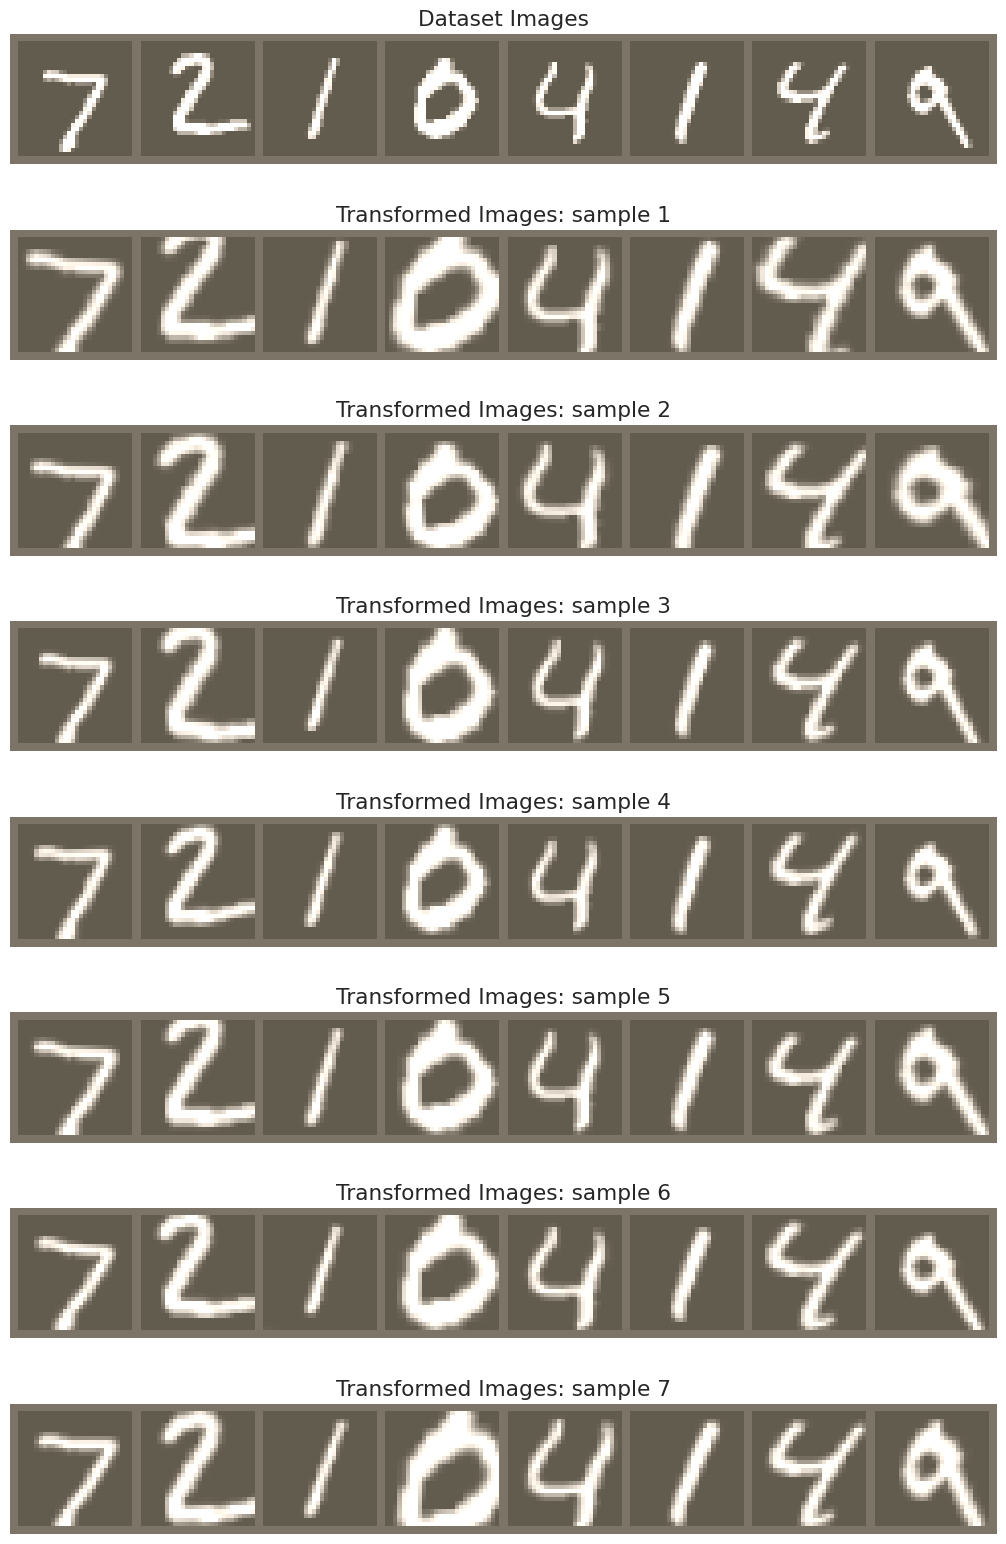 Dataset Images
7 2 1 0 4 1 4 9
Transformed Images: sample 1
7 2 1 0 4 1 4 9
Transformed Images: sample 2
7 2 1 0 4 1 4 9
Transformed Images: sample 3
7 2 1 0 4 1 4 9
Transformed Images: sample 4
7 2 1 0 4 1 4 9
Transformed Images: sample 5
7 2 1 0 4 1 4 9
Transformed Images: sample 6
7 2 1 0 4 1 4 9
Transformed Images: sample 7
7 2 1 0 4 1 4 9